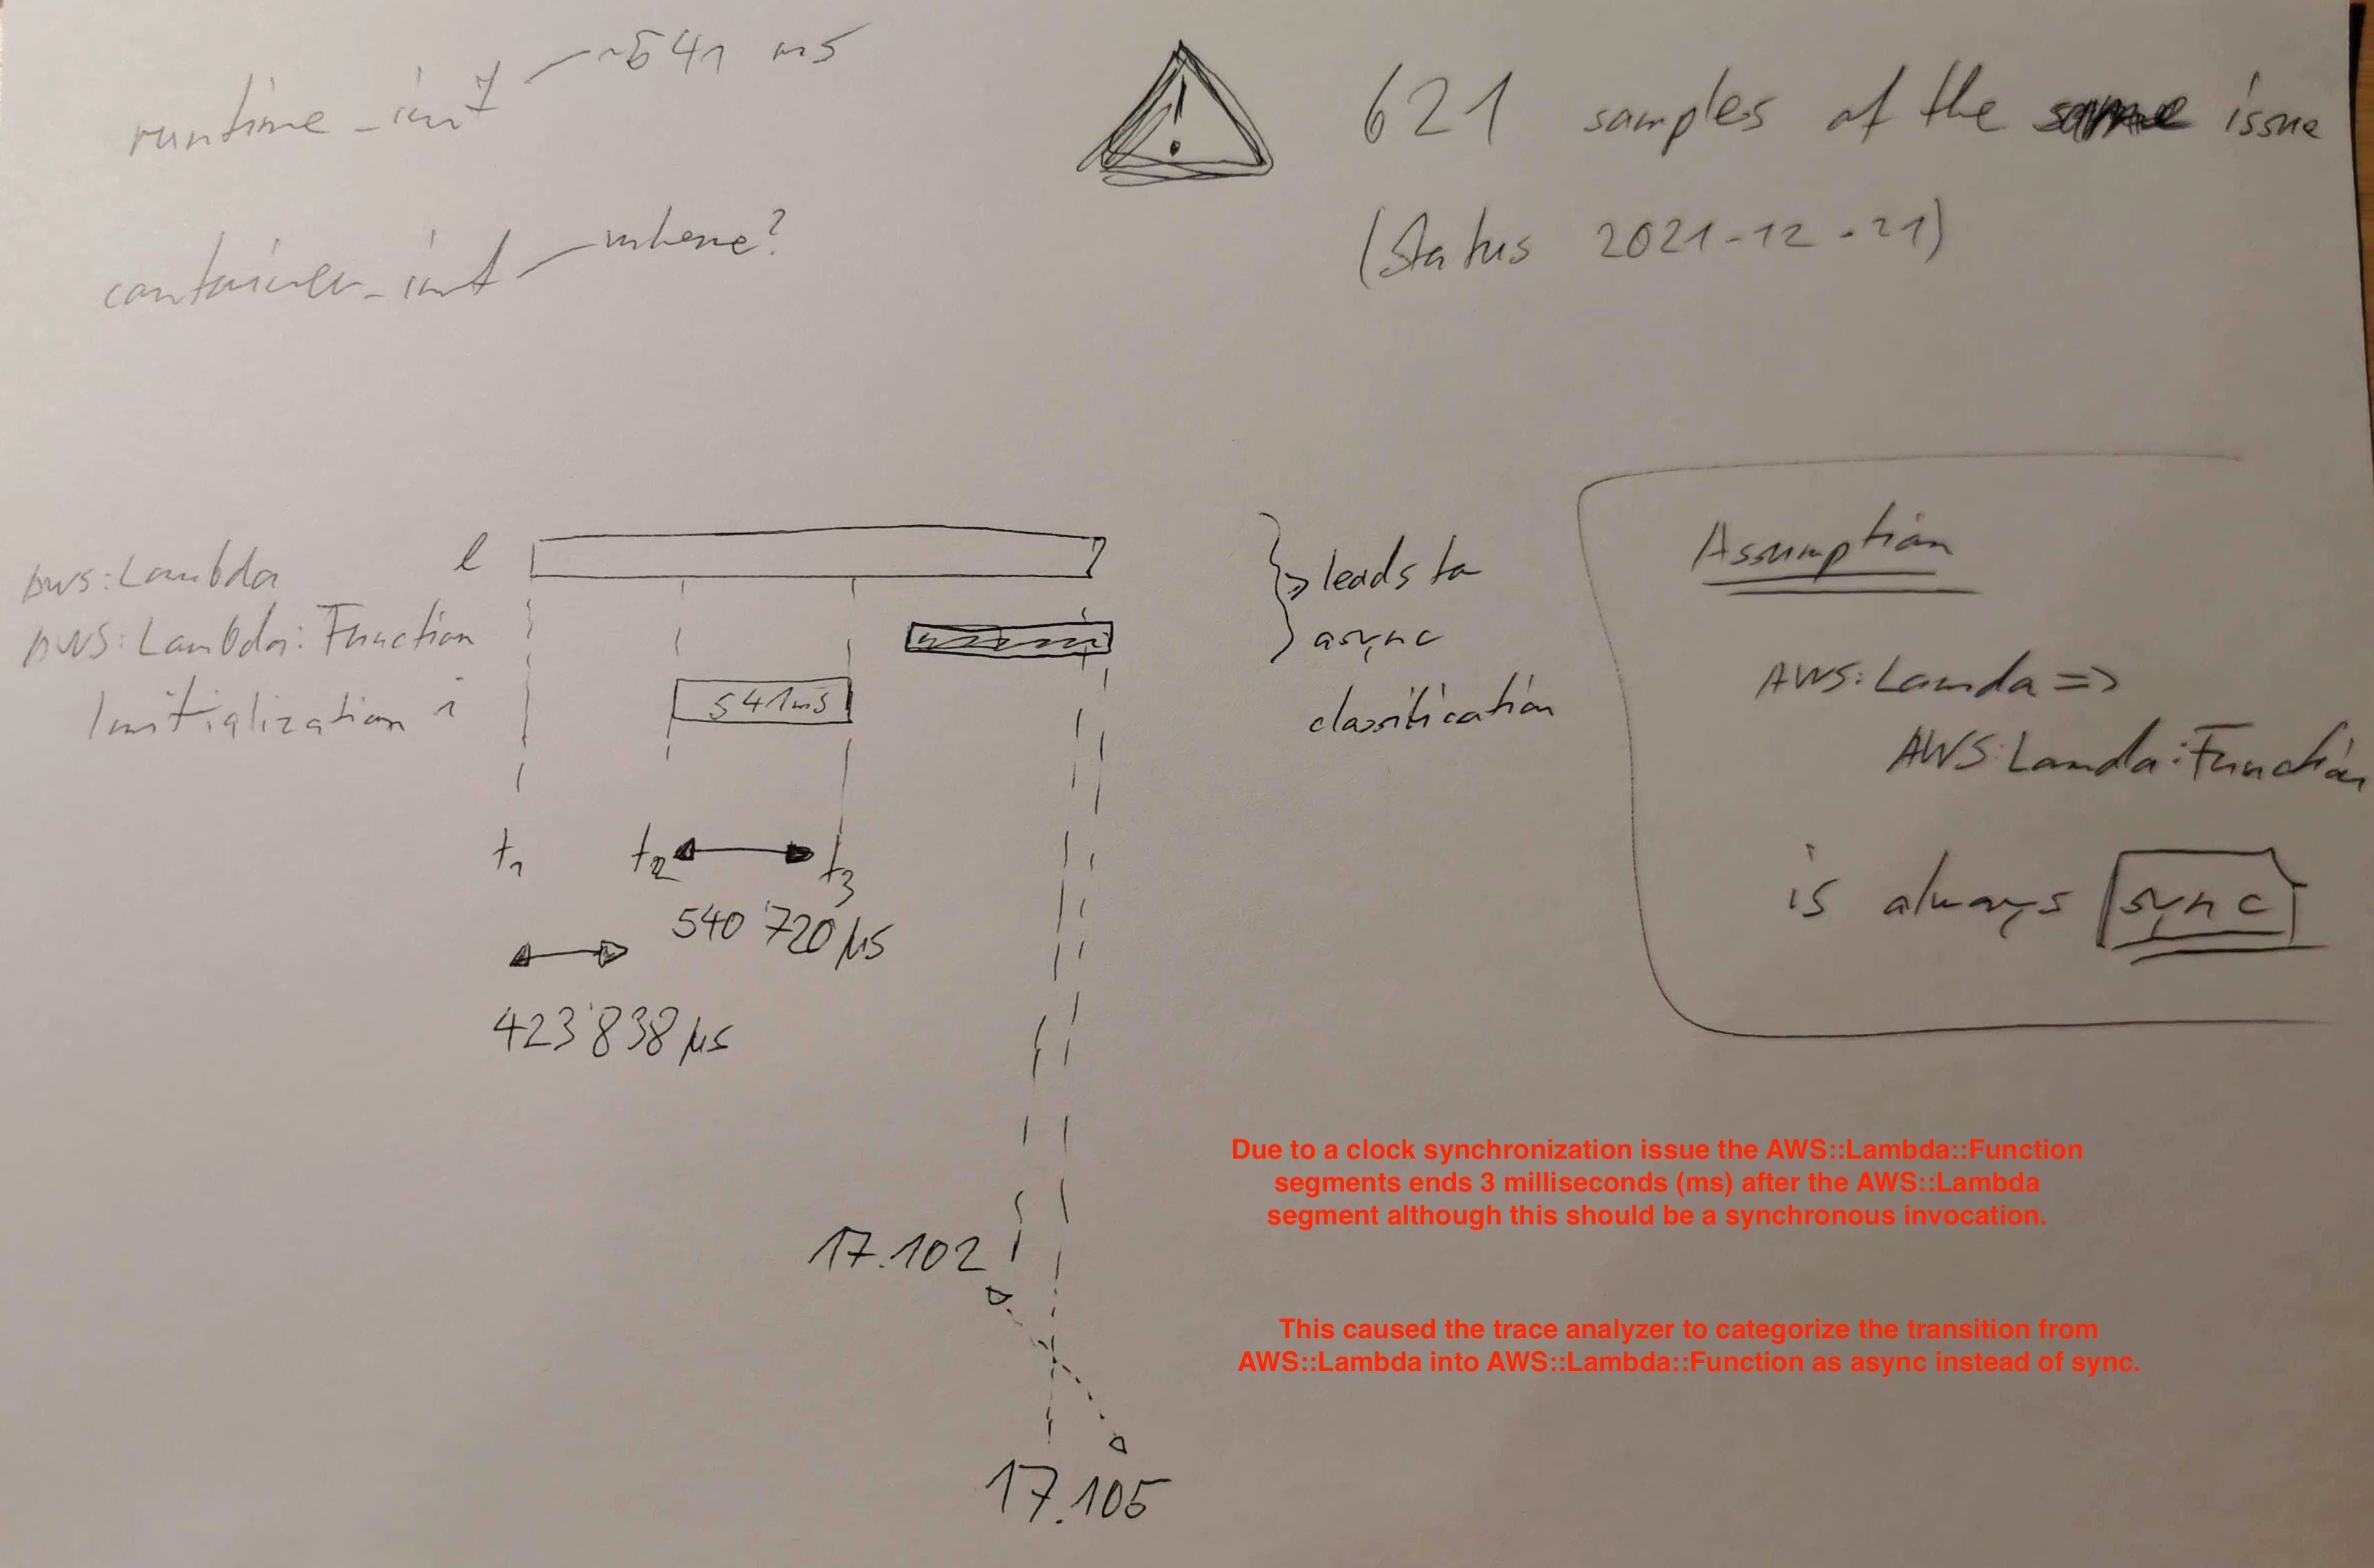 runtime_init ~541 ms
container_init where?
! 621 samples of the same issue
(Status 2021-12-21)
AWS:Lambda l
AWS:Lambda:Function
Initialization i
541ms
} => leads to
async
classification
Assumption
AWS:Lamda =>
AWS:Lamda:Function
is always sync
t1 t2 t3
540'720 µs
423'838 µs
17.102
17.105
Due to a clock synchronization issue the AWS::Lambda::Function
segments ends 3 milliseconds (ms) after the AWS::Lambda
segment although this should be a synchronous invocation.
This caused the trace analyzer to categorize the transition from
AWS::Lambda into AWS::Lambda::Function as async instead of sync.